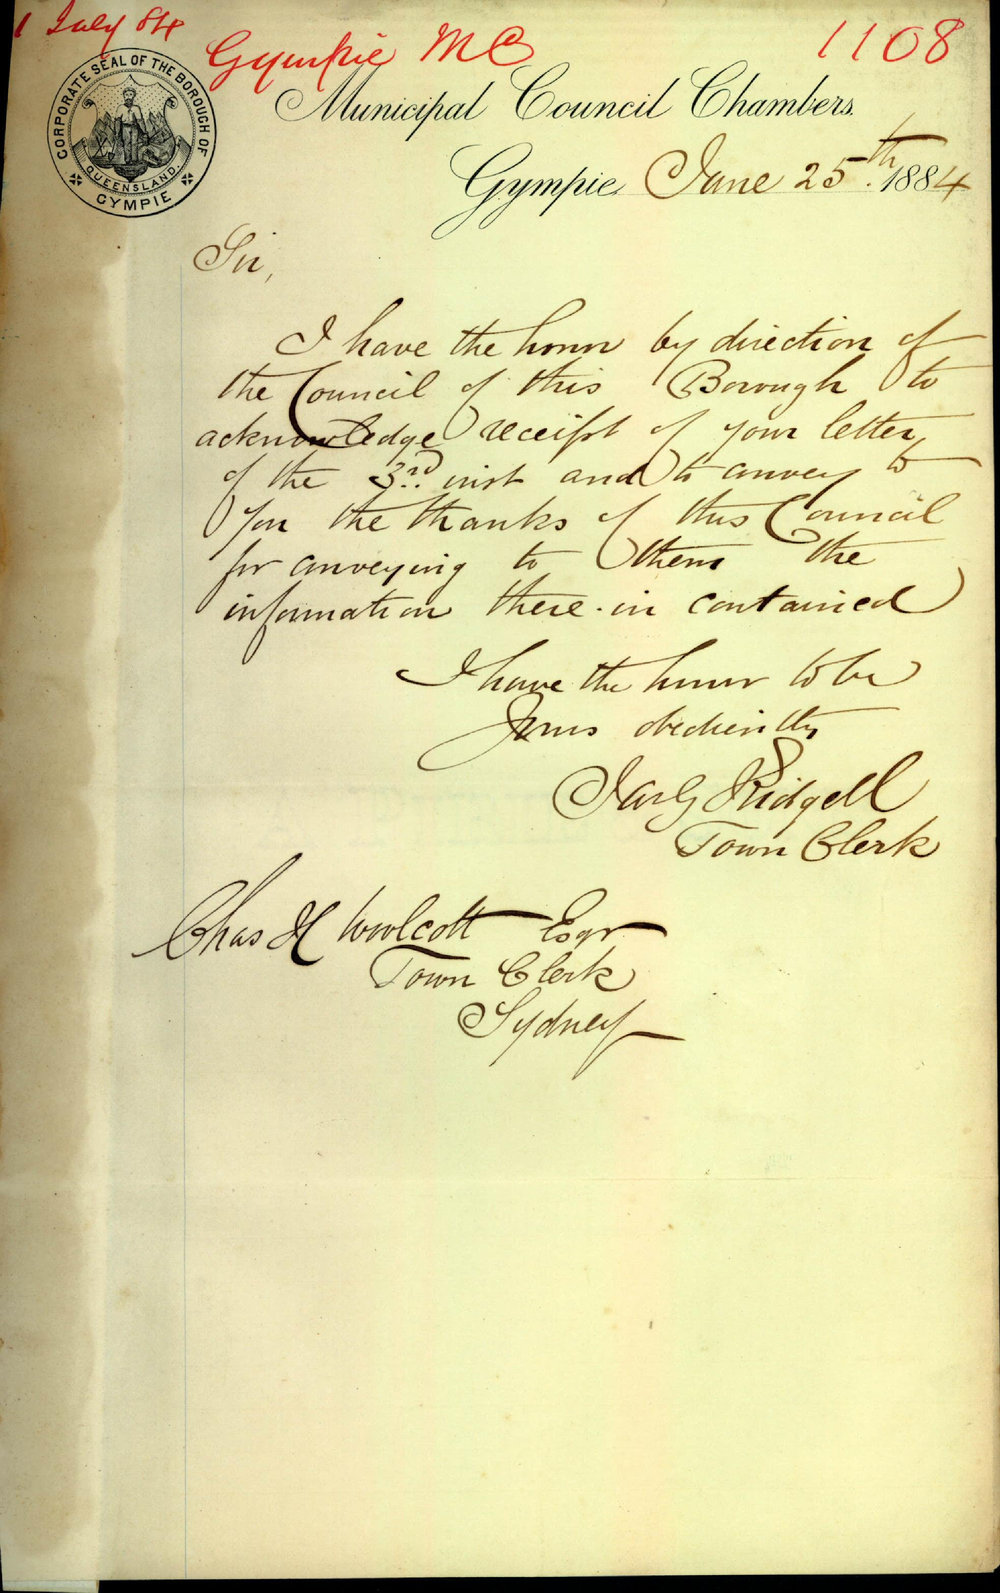 1 July 84
Gympie MC
1108
CORPORATE SEAL OF THE BOROUGH OF
GYMPIE
QUEENSLAND.
Municipal Council Chambers.
Gympie, June 25th. 1884
Sir,
I have the honor by direction of
the Council of this Borough to
acknowledge receipt of your letter
of the 3rd. inst and to convey to
you the thanks of this Council
for conveying to them the
information there-in contained
I have the honor to be
Yours obediently
Ridgell
Town Clerk
Chas H Woolcott Esqr
Town Clerk
Sydney